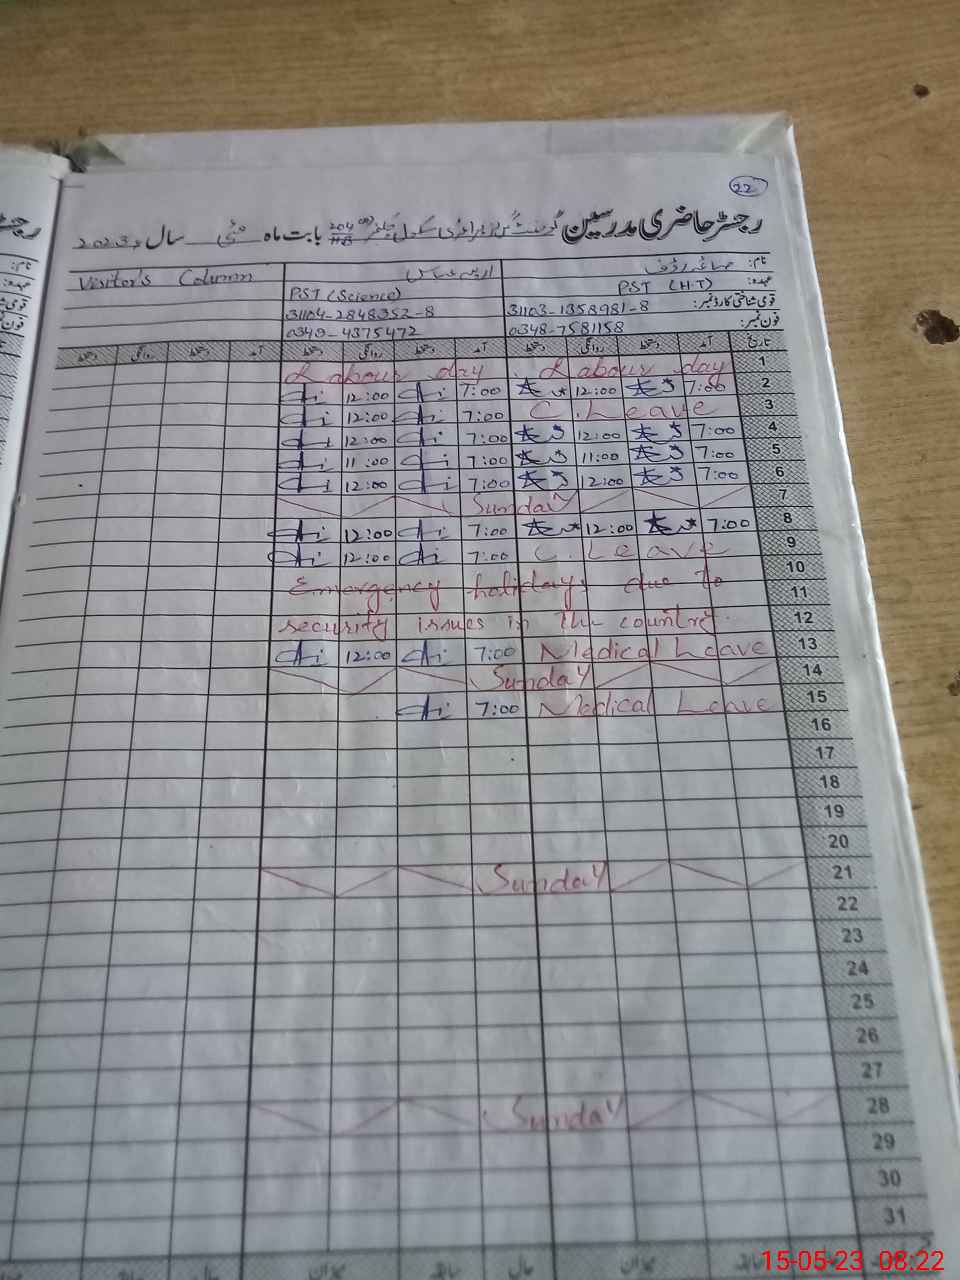 22
رجسٹر حاضری مدرسین گورنمنٹ گرلز پرائمری سکول چکنمبر 204 HB بابت ماہ مئی سال 2023ء
نام: صائمہ رؤف
Visitor's Column
عہدہ: PST (H.T)
PST (Science)
قومی شناختی کارڈ نمبر: 31103-1358981-8
31104-2848352-8
فون نمبر: 0348-7581158
0349-4375472
تاریخ آمد دستخط روانگی دستخط آمد دستخط روانگی دستخط آمد دستخط روانگی دستخط
1 Labour day Labour day
2 7:00 12:00 7:00 12:00
3 C.Leave 7:00 12:00
4 7:00 12:00 7:00 12:00
5 7:00 11:00 7:00 11:00
6 7:00 12:00 7:00 12:00
7 Sunday
8 7:00 12:00 7:00 12:00
9 C.Leave 7:00 12:00
10
11 Emergency holidays due to
12 security issues in the country.
13 Medical Leave 7:00 12:00
14 Sunday
15 Medical Leave 7:00
16
17
18
19
20
21 Sunday
22
23
24
25
26
27
28 Sunday
29
30
31
میزان سابقہ حال میزان
15-05-23 08:22